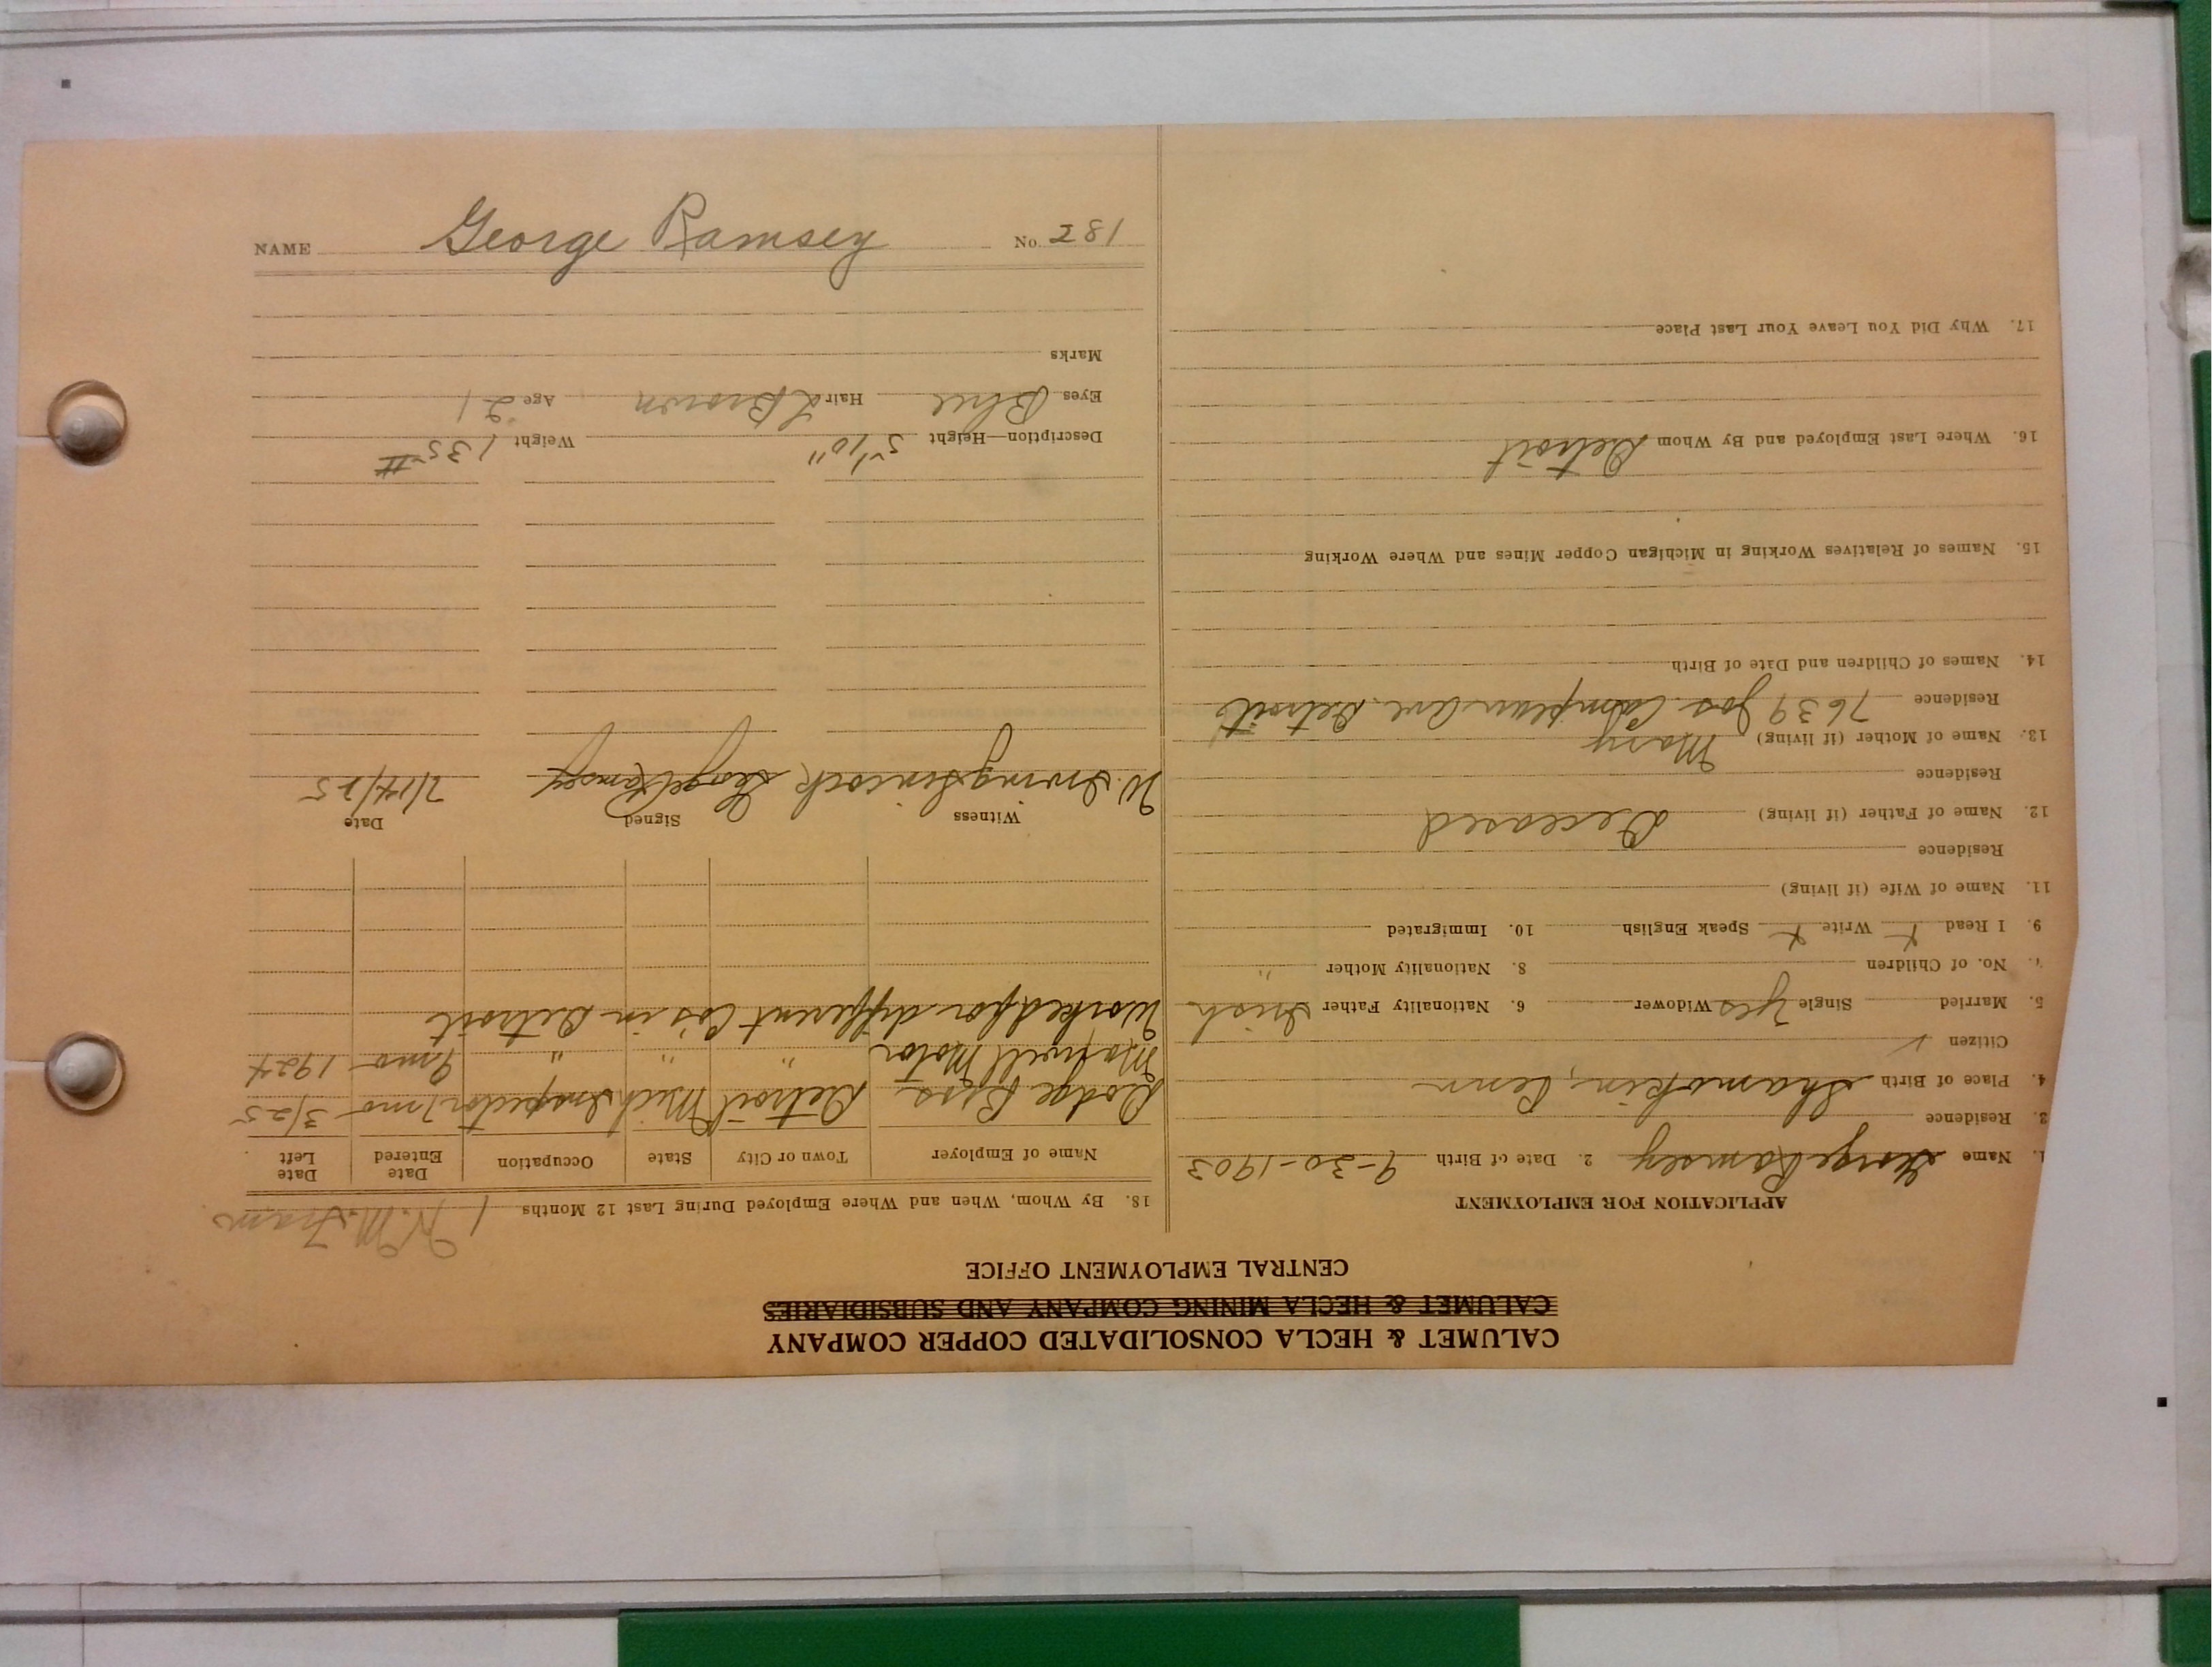 CALUMET & HECLA CONSOLIDATED COPPER COMPANY
CALUMET & HECLA MINING COMPANY AND SUBSIDIARIES
CENTRAL EMPLOYMENT OFFICE
APPLICATION FOR EMPLOYMENT
1. Name George Ramsey 2. Date of Birth 9-30-1903
3. Residence
4. Place of Birth Shamokin, Penn
Citizen ✓
5. Married Single Yes Widower 6. Nationality Father Irish
7. No. of Children 8. Nationality Mother "
9. I Read x Write x Speak English 10. Immigrated
11. Name of Wife (if living)
Residence
12. Name of Father (if living) Deceased
Residence
13. Name of Mother (if living) Mary
Residence 7639 Jos. Campau Ave. Detroit
14. Names of Children and Date of Birth
15. Names of Relatives Working in Michigan Copper Mines and Where Working
16. Where Last Employed and By Whom Detroit
17. Why Did You Leave Your Last Place
18. By Whom, When and Where Employed During Last 12 Months
Name of Employer Town or City State Occupation Date Entered Date Left
Dodge Bros Detroit Mich Inspector 7 mo 3/25
Maxwell Motor " " " 9 mo 1924
Worked for different Co's in Detroit
Witness Signed Date
W. Irving George Ramsey 7/14/25
Description—Height 5'10" Weight 135 #
Eyes Blue Hair L Brown Age 21
Marks
NAME George Ramsey No. 281